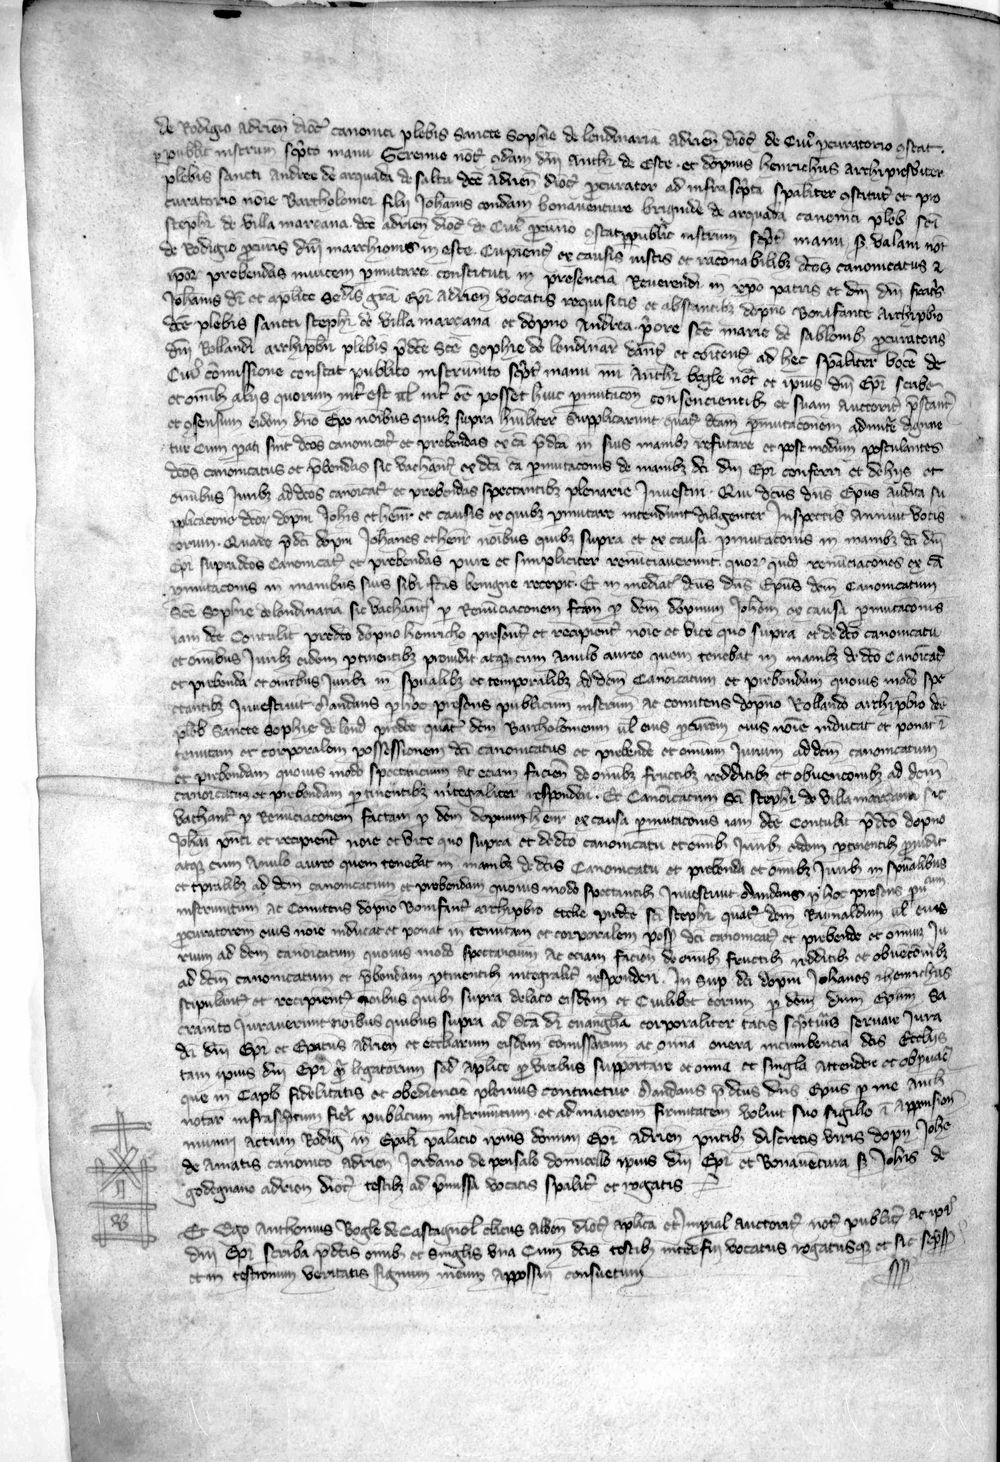 de Rodigio adrien dioc canonici plebis sancte Sophie de lendinaria adrien dioc de Cui pcuratorio ostat
p publicu instrum scpto manu not odam dni Anth de Este et dopnus henrichus archipresbiter
plebis sancti Andree de arquada de saltu dce Adrien dioc pcurator ad infrascpta spaliter ostitut et pro
curatorio noie Bartholomei filii Johanis condam bonauenture de arquada canonici pleb sci
stephi de villa marcana dce adrien dioc de Cui pcurio ostat publicu instrum scpt manu not
de Rodigio pcuris dni marchionis in este Cupient ex causis iustis et racionabilibz dcos canonicatus et
ipor prebendas inuicem pmutare constituti in presencia Reuerendi in xpo patris et dni dni fratris
Johanis di et aplice sedis gra Epi Adrien vocatis requisitis et abstantibz dopno Bonifante Archipbro
dce plebis sancti stephi de villa marcana et dopno Andrea pore sce marie de
dni Rollandi archipbri plebis pdce Sce Sophie de lendinar dant et coitent ad hec spaliter voce de
Cui comissione constat publico instrumto scpt manu mi Anthi bogle not et ipius dni Epi scribe
et omibz alijs quorum int est ul int ee posset huic pmutacioni consencientibz et suam auctoritat pstant
et osensum eidem dno Epo noibus quibz supra humiliter supplicarunt quat dcam pmutacionem admitte dignare
tur Cum pati sint dcos canonicat et prebendas ex ca pdca in suis manibz refutare et postmodum postulantes
dcos canonicatus et pbendas sic vachant ex dca ca pmutacionis de manibz dci dni Epi conferri et de hijs et
omibus Juribz ad dcos canonicat et prebendas spectantibz plenarie Inuestiri Qui dcus dns Epus audita su
pplicacione dcor dopni Johis et henr et causis ex quibz pmutare intendunt diligenter Inspectis annuit votis
eorum Quare pdci dopni Johanes et henr noibus quibz supra et ex causa pmutacionis in manibz dci dni
Epi supradcos Canonicat et prebendas pure et simpliciter renunciauerunt quor quid renunciaciones ex ca
pmutacionis in manibus suis sibi fcas benigne recepit Et in mediat dcus dns Epus dcm Canonicatum
Sce Sophie de lendinaria sic vachant p Renunciacionem fcam p dcm dopnum Johem ex causa pmutacionis
iam dce Contulit predco dopno henricho present et recipient noie et vice quo supra et de dco canonicatu
et omibus Juribz eidem ptinentibz prouidit atqz cum Anulo aureo quem tenebat in manibz de dco Canonicat
et prebenda et omibus Juribz in spualibz et temporalibz ad dcm Canonicatum et prebendam quouis modo spe
ctantibz Inuestiuit Mandans p hoc presens publicum instrum ac comitens dopno Rollando archipbro dce
pleb Sancte Sophie de lend predce quat dcm Bartholomeum ul eius pcurem eius noie inducat et ponat i
tenutam et corporalem possessionem dci canonicatus et prebende et omium Jurum ad dcm canonicatum
et prebendam quouis modo spectancium Ac eciam facien de omibz fructibz redditibz et obuencoibz ad dcm
canonicatus et prebendam ptinentibz integraliter responderi Et Canonicatum Sci stephi de villa marcana sic
vachant p Renunciacionem factam p dcm dopnum henr ex causa pmutacionis iam dce Contulit pdco dopno
Johi pnti et recipient noie et vice quo supra et de dco canonicatu et omibz Juribz eidem ptinentibz puidit
atqz cum Anulo aureo quem tenebat in manibz de dcis Canonicatu et prebenda et omibz Juribz in spualibus
et tpralibz ad dcm canonicatum et prebendam quouis modo spectantibz Inuestiuit Mandans p hoc presens pu
instrumtum Ac Comitens dopno Bonifant archipbro ecclie predce sci stephi quat dcm Rainaldum ul eius
pcuratorem eius noie inducat et ponat in tenutam et corporalem poss dci canonicat et prebende et omium Ju
rium ad dcm canonicatum quouis modo spectancium Ac eciam facien de omibz fructibz redditibz et obuecoibz
ad dcm canonicatum et pbendam ptinentibz integralit responderi In sup dci dopni Johanes et henrichus
stipulant et recipient noibus quibz supra delato eisdem et Cuilibet eorum p dcm dnm Epum sa
cramto Jurauerunt noibus quibus supra ad sca di euanglia corporaliter tactis scpturis seruare Jura
dci dni Epi et Epatus Adrien et eccliarum eisdem comissarum ac onnia onera incumbencia dcis Ecclijs
tam ipius dni Epi q legatorum sed Aplice p viribus supportare et onnia et singla attendere et obseruare
que in Caplo fidelitatis et obediencie plenius continetur Mandans p dcus dns Epus p me Anth
notar infrascptum fieri publicum instrumtum et ad maiorem firmitatem voluit suo sigillo i appension
muniri Actum Rodig in Epali palacio ipius domini Epi Adrien pntibz discretis viris dopn Johe
de Amatis canonico adrien Jordano de domicello ipius dni Epi et Bonauentura Johis de
godegnano adrien dioc testibz ad pmissa vocatis spalit et rogatis
Et Ego Anthonius Bogle de Castagnol clicus Alben dioc aplica et Impial Auctorat not public ac ipi
dni Epi scriba pdcis omibz et singlis vna Cum dcis testibz interfui vocatus rogatusqz et sic scpsi
et in testimonium veritatis signum meum apposui consuetum